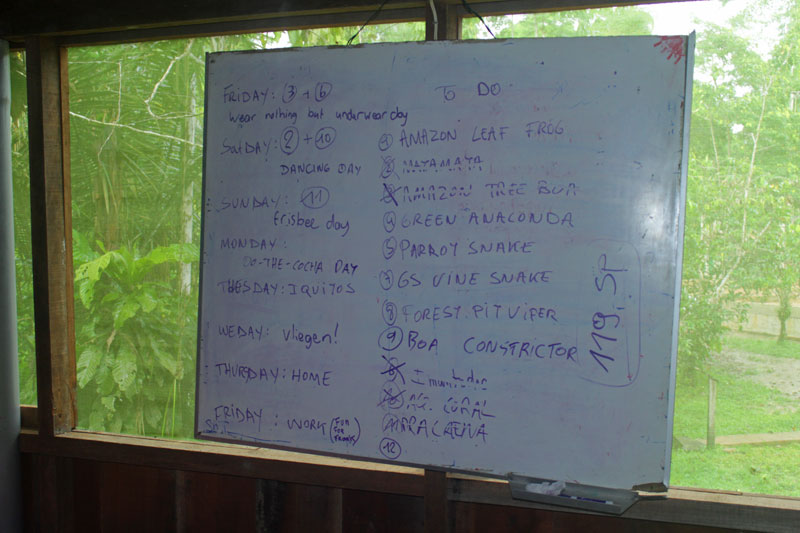 FRIDAY: 3 + 6
wear nothing but underwear day
SatDAY: 2 + 10
DANCING DAY
SUNDAY: 11
frisbee day
MONDAY:
DO-THE-COCHA DAY
TUESDAY: IQUITOS
WEDAY: vliegen!
THURSDAY: HOME
FRIDAY: WORK (FUN FOR FRANKS)
TO DO
1 AMAZON LEAF FROG
2 MATAMATA
3 AMAZON TREE BOA
4 GREEN ANACONDA
5 PARROT SNAKE
7 GS VINE SNAKE
8 FOREST PITVIPER
9 BOA CONSTRICTOR
CORAL
12
119. SP